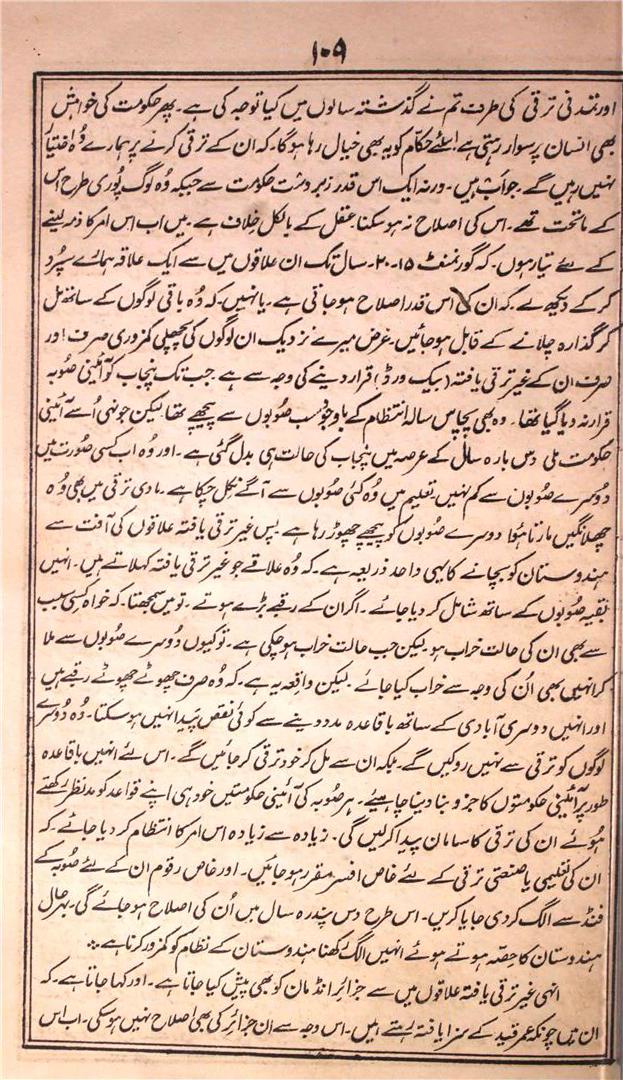 ۱۰۹
اور تمدنی ترقی کی طرف تم نے گذشتہ سالوں میں کیا توجہ کی ہے۔ پھر حکومت کی خواہش
بھی انسان پر سوار رہتی ہے اسلئے حکام کو یہ بھی خیال رہا ہوگا۔ کہ ان کے ترقی کرنے پر ہمارے وُہ اختیار
نہیں رہیں گے۔ جو اَب ہیں۔ ورنہ ایک اس قدر زبردست حکومت سے جبکہ وُہ لوگ پُوری طرح اس
کے ماتحت تھے۔ اس کی اصلاح نہ ہو سکنا عقل کے بالکل خلاف ہے۔ میں اب اس امر کا ذمہ لینے
کے لئے تیار ہوں۔ کہ گورنمنٹ ۱۵۔۲۰۔ سال تک ان علاقوں میں سے ایک علاقہ ہمارے سپُرد
کر کے دیکھ لے۔ کہ ان کی اس قدر اصلاح ہو جاتی ہے۔ یا نہیں۔ کہ وُہ باقی لوگوں کے ساتھ مل
کر گذارہ چلانے کے قابل ہو جائیں۔ غرض میرے نزدیک ان لوگوں کی پچھلی کمزوری صرف اور
صرف ان کے غیر ترقی یافتہ (بیک ورڈ) قرار دینے کی وجہ سے ہے۔ جب تک پنجاب کو آئینی صُوبہ
قرار نہ دیا گیا تھا۔ وہ بھی پچاس سالہ انتظام کے باوجود سب صُوبوں سے پیچھے تھا لیکن جونہی اُسے آئینی
حکومت ملی دس بارہ سال کے عرصہ میں پنجاب کی حالت ہی بدل گئی ہے۔ اور وُہ اب کسی صُورت میں
دُوسرے صُوبوں سے کم نہیں۔ تعلیم میں وُہ کئی صُوبوں سے آگے نکل چکا ہے۔ مادی ترقی میں بھی وُہ
چھلانگیں مارتا ہؤا دوسرے صُوبوں کو پیچھے چھوڑ رہا ہے۔ پس غیر ترقی یافتہ علاقوں کی آفت سے
ہندوستان کو بچانے کا یہی واحد ذریعہ ہے۔ کہ وُہ علاقے جو غیر ترقی یافتہ کہلاتے ہیں۔ انہیں
بقیہ صُوبوں کے ساتھ شامل کر دیا جائے۔ اگر ان کے رقبے بڑے ہوتے۔ تو میں سمجھتا۔ کہ خواہ کسی سبب
سے بھی ان کی حالت خراب ہو۔ لیکن جب حالت خراب ہو چکی ہے۔ تو کیوں دُوسرے صُوبوں سے ملا
کر انہیں بھی اُن کی وجہ سے خراب کیا جائے۔ لیکن واقعہ یہ ہے۔ کہ وُہ صرف چھوٹے چھوٹے رقبے ہیں
اور انہیں دوسری آبادی کے ساتھ باقاعدہ مدد دینے سے کوئی نقص پَیدا نہیں ہو سکتا۔ وُہ دُوسرے
لوگوں کو ترقی سے نہیں روکیں گے۔ بلکہ ان سے مل کر خود ترقی کر جائیں گے۔ اس لئے انہیں باقاعدہ
طور پر آئینی حکومتوں کا جزو بنا دینا چاہیئے۔ ہر صُوبہ کی آئینی حکومتیں خود ہی اپنے قواعد کو مد نظر رکھتے
ہُوئے ان کی ترقی کا سامان پیدا کر لیں گی۔ زیادہ سے زیادہ اس امر کا انتظام کر دیا جائے۔ کہ
ان کی تعلیمی یا صنعتی ترقی کے لئے خاص افسر مقرر ہو جائیں۔ اور خاص رقوم ان کے لئے صُوبہ کے
فنڈ سے الگ کر دی جایا کریں۔ اس طرح دس پندرہ سال میں اُن کی اصلاح ہو جائے گی۔ بہرحال
ہندوستان کا حِصّہ ہوتے ہوئے انہیں الگ رکھنا ہندوستان کے نظام کو کمزور کرنا ہے۔
انہی غیر ترقی یافتہ علاقوں میں سے جزائر انڈمان کو بھی پیش کیا جاتا ہے۔ اور کہا جاتا ہے۔ کہ
ان میں چونکہ عمر قید کے سزا یافتہ رہتے ہیں۔ اس وجہ سے ان جزائر کی بھی اصلاح نہیں ہو سکی۔ اب اس